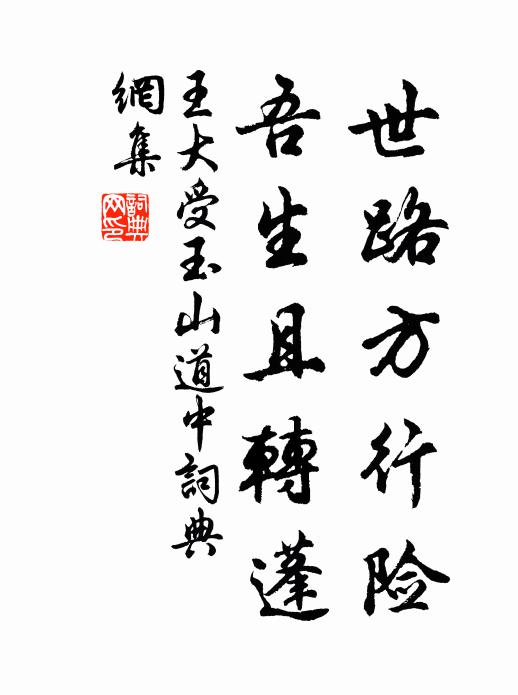 世路方行险
吾生且轉蓬
王大受玉山道中詞典
網集
詞典
网印